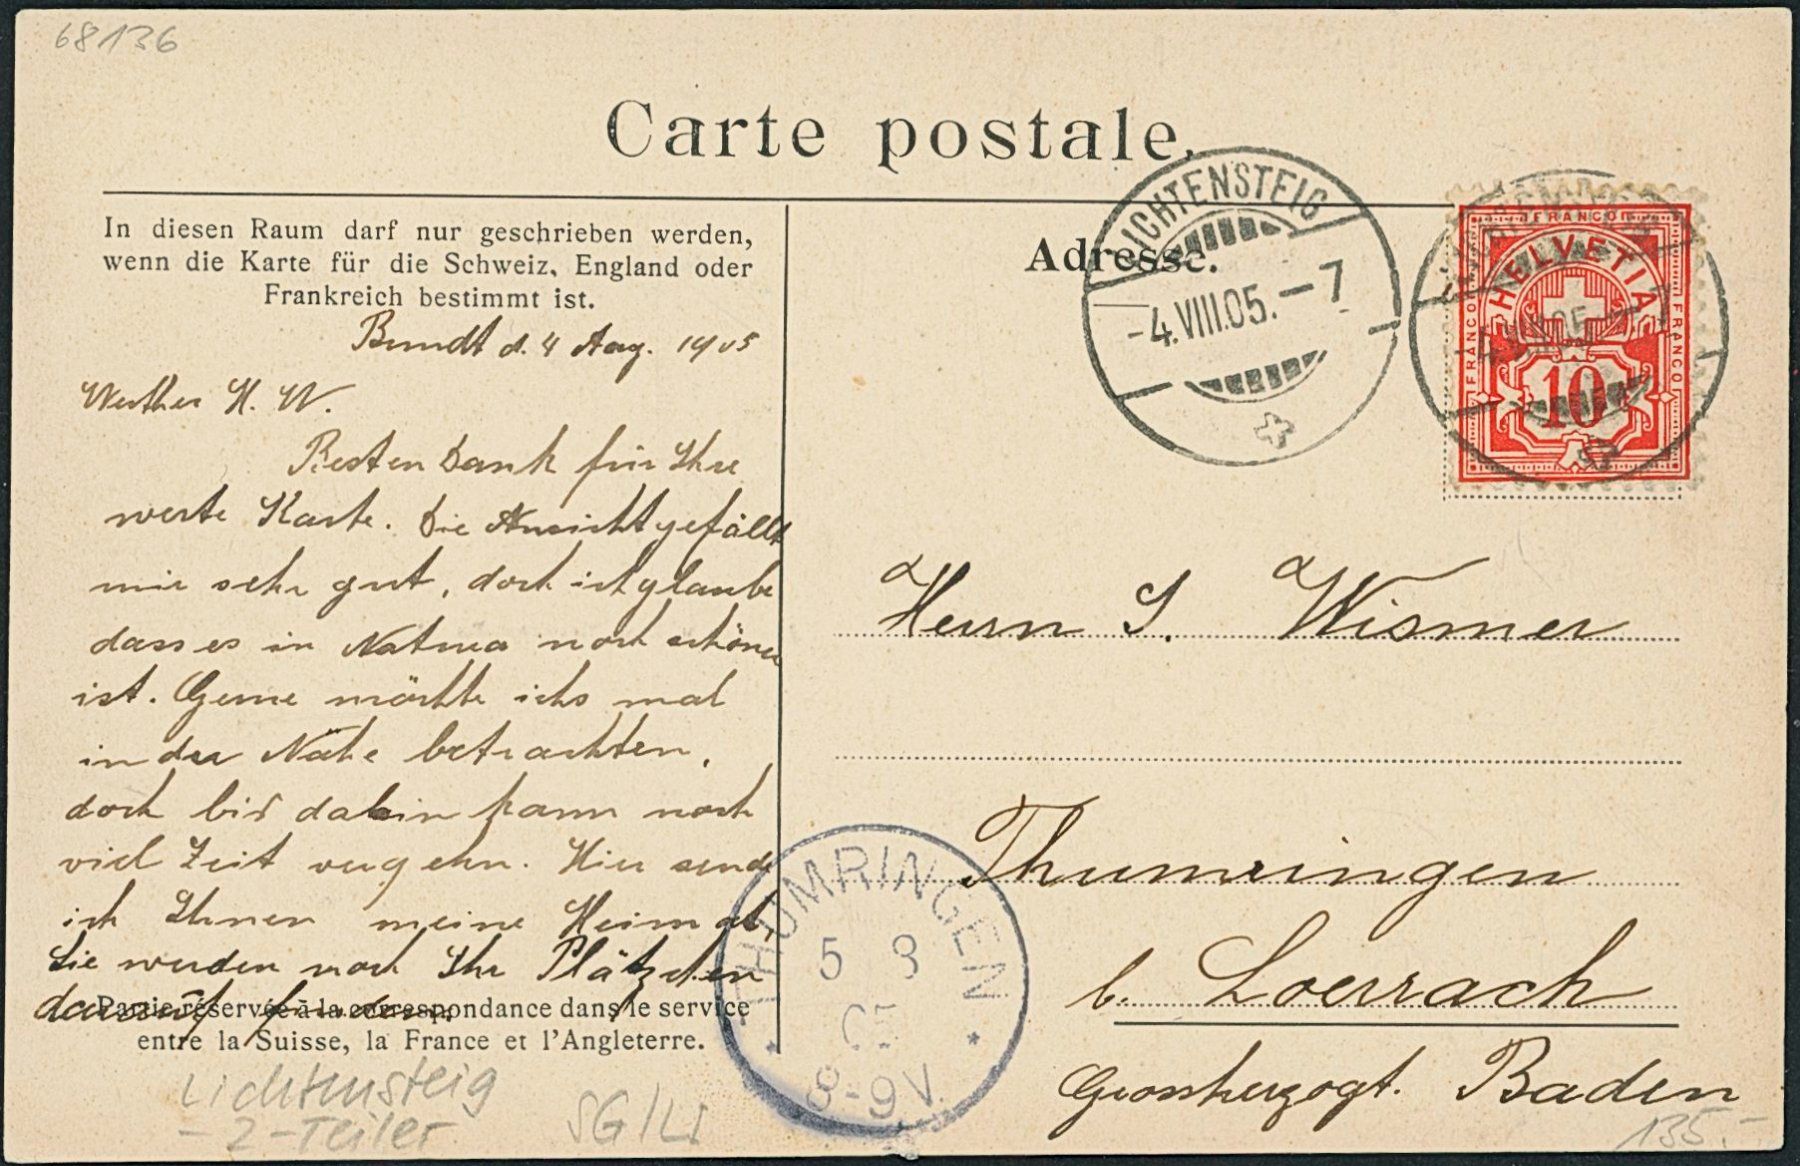 68136
Carte postale.
In diesen Raum darf nur geschrieben werden,
wenn die Karte für die Schweiz, England oder
Frankreich bestimmt ist.
Adresse.
LICHTENSTEIG
-4.VIII.05.-7
FRANCO
HELVETIA
FRANCO
FRANCO
10
Bundt d. 4 Aug. 1905
Werther H. W.
Besten Dank für Ihre
werte Karte. Die Ansicht gefällt
mir sehr gut, doch ich glaube
dass es in Natura noch schöner
ist. Gerne möchte ichs mal
in der Nähe betrachten,
doch bis dahin kann noch
viel Zeit vergehn. Hier sende
ich Ihnen meine Heimat,
Sie werden noch Ihr Plätzchen
darauf finden.
Partie réservée à la correspondance dans le service
entre la Suisse, la France et l'Angleterre.
Herrn S. Wismer
Thumringen
b. Loerrach
Grossherzogt. Baden
THUMRINGEN
5 8
05
8-9V.
Lichtensteig
-2-Teiler
SG/Li
135.-